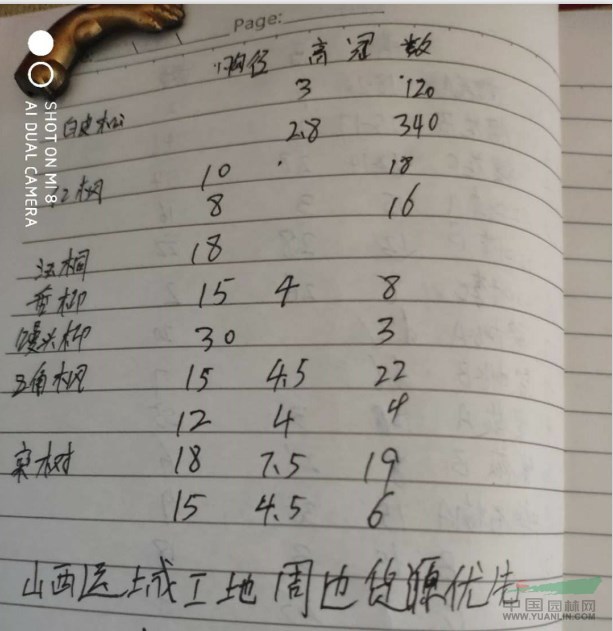 Page:
胸径 高 冠 数
3 120
白皮松 2.8 340
10 18
红枫 8 16
18
法桐
垂柳 15 4 8
馒头柳 30 3
三角枫 15 4.5 22
12 4 4
栾树 18 7.5 19
15 4.5 6
山西运城工地周边货源优先
SHOT ON MI 8
AI DUAL CAMERA
中国园林网
WWW.YUANLIN.COM